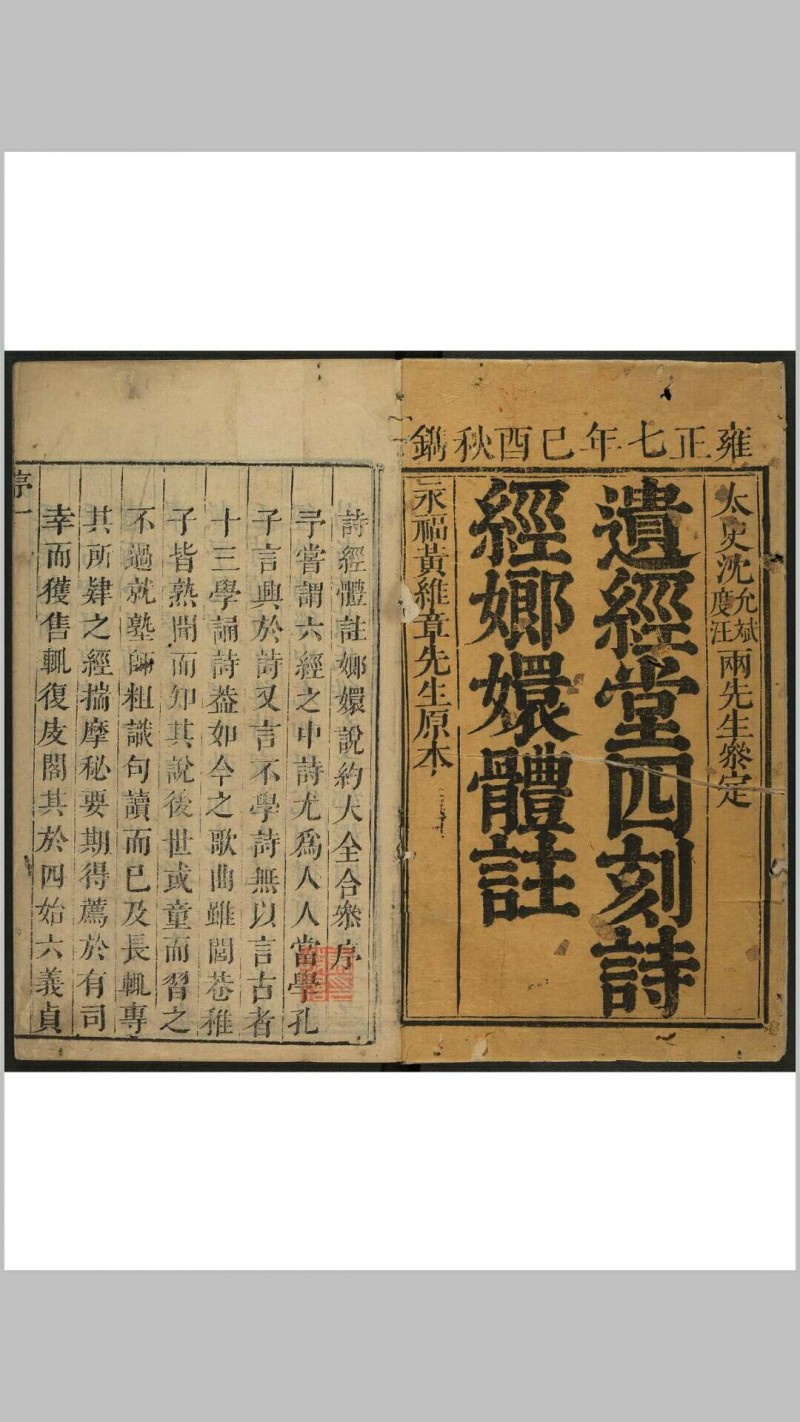 雍正七年巳酉秋鐫
太史沈允斌度汪兩先生叅定
遺經堂四刻詩
經嫏嬛體註
永福黃維章先生原本
詩經體註嫏嬛說約大全合叅序
予嘗謂六經之中詩尤為人人當學孔
子言興於詩又言不學詩無以言古者
十三學誦詩葢如今之歌曲雖閭巷稚
子皆熟聞而知其說後世或童而習之
不過就塾師粗識句讀而已及長輒專
其所肄之經揣摩秘要期得薦於有司
幸而獲售輒復庋閣其於四始六義貞
序一